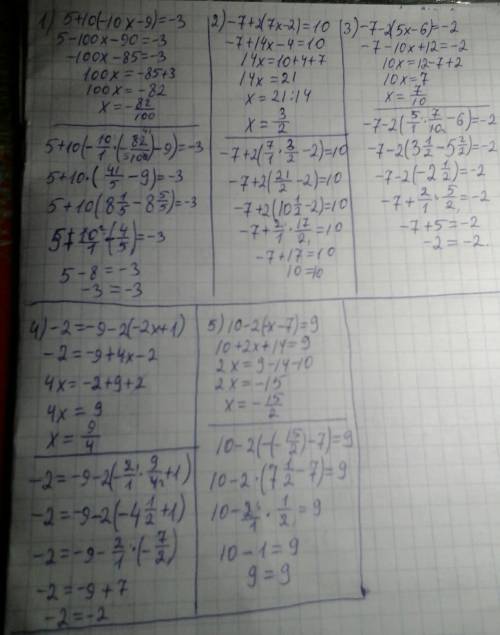 1) 5+10(-10x-9)=-3
5-100x-90=-3
-100x-85=-3
100x=-85+3
100x=-82
x=-82/100
5+10(-10/1·(-82/100)-9)=-3
5+10·(41/5-9)=-3
5+10(8 1/5-8 5/5)=-3
5+10/1·(-4/5)=-3
5-8=-3
-3=-3
2) -7+2(7x-2)=10
-7+14x-4=10
14x=10+4+7
14x=21
x=21:14
x=3/2
-7+2(7/1·3/2-2)=10
-7+2(21/2-2)=10
-7+2(10 1/2-2)=10
-7+2/1·17/2=10
-7+17=10
10=10
3) -7-2(5x-6)=-2
-7-10x+12=-2
10x=12-7+2
10x=7
x=7/10
-7-2(5/1·7/10-6)=-2
-7-2(3 1/2-5 2/2)=-2
-7-2(-2 1/2)=-2
-7+2/1·5/2=-2
-7+5=-2
-2=-2
4) -2=-9-2(-2x+1)
-2=-9+4x-2
4x=-2+9+2
4x=9
x=9/4
-2=-9-2(-2/1·9/4+1)
-2=-9-2(-4 1/2+1)
-2=-9-2/1·(-7/2)
-2=-9+7
-2=-2
5) 10-2(-x-7)=9
10+2x+14=9
2x=9-14-10
2x=-15
x=-15/2
10-2(-(-15/2)-7)=9
10-2·(7 1/2-7)=9
10-2/1·1/2=9
10-1=9
9=9